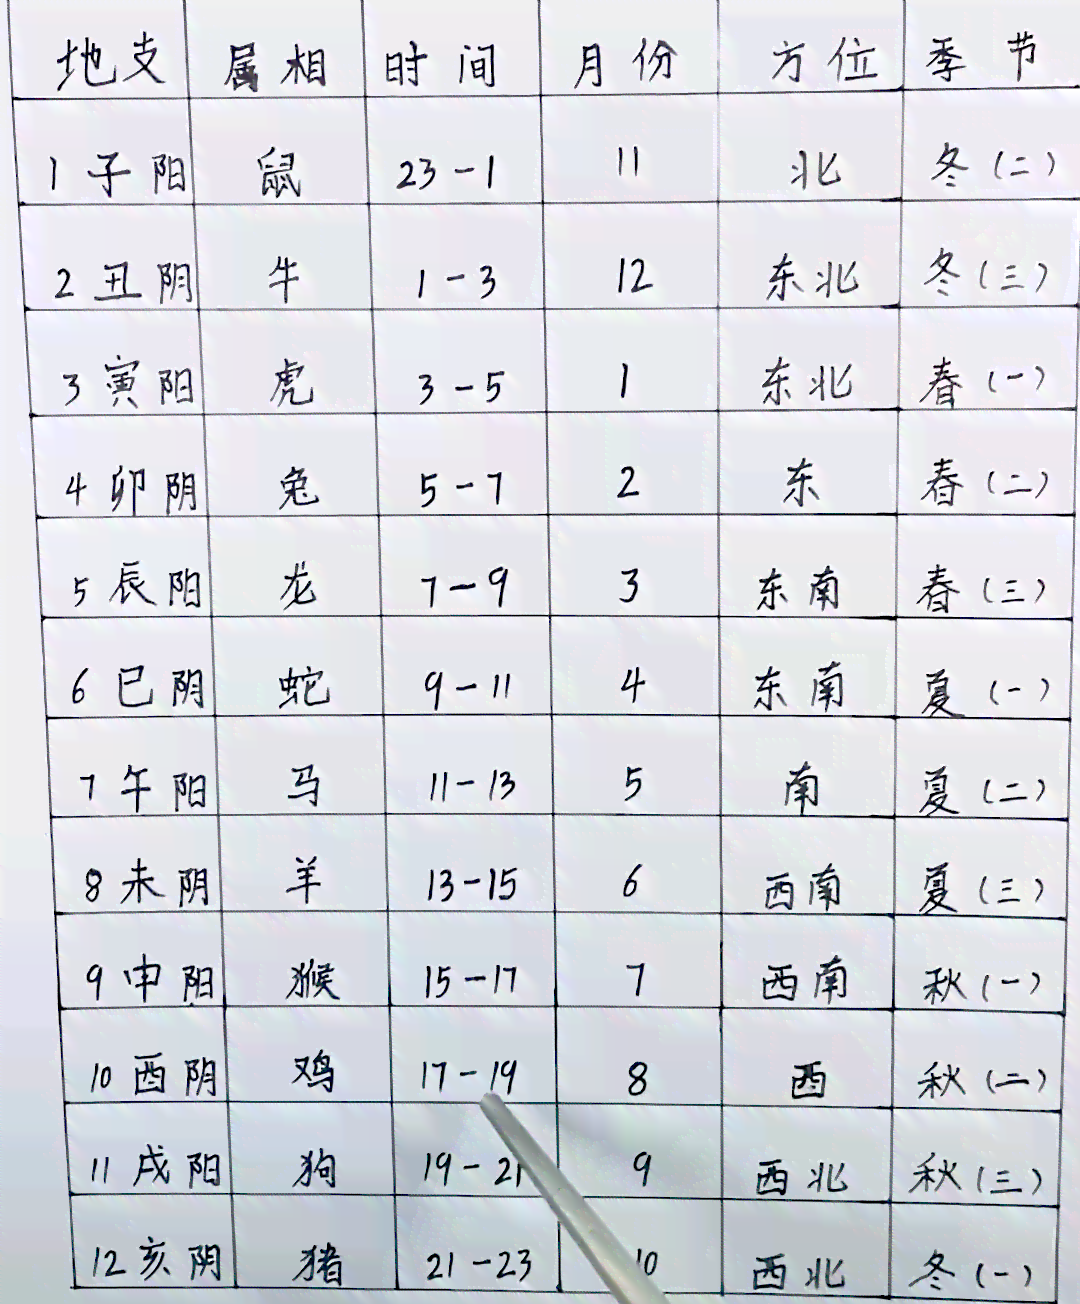 地支 属相 时间 月份 方位 季节
1 子 阳 鼠 23-1 11 北 冬(二)
2 丑 阴 牛 1-3 12 东北 冬(三)
3 寅 阳 虎 3-5 1 东北 春(一)
4 卯 阴 兔 5-7 2 东 春(二)
5 辰 阳 龙 7-9 3 东南 春(三)
6 巳 阴 蛇 9-11 4 东南 夏(一)
7 午 阳 马 11-13 5 南 夏(二)
8 未 阴 羊 13-15 6 西南 夏(三)
9 申 阳 猴 15-17 7 西南 秋(一)
10 酉 阴 鸡 17-19 8 西 秋(二)
11 戌 阳 狗 19-21 9 西北 秋(三)
12 亥 阴 猪 21-23 10 西北 冬(一)